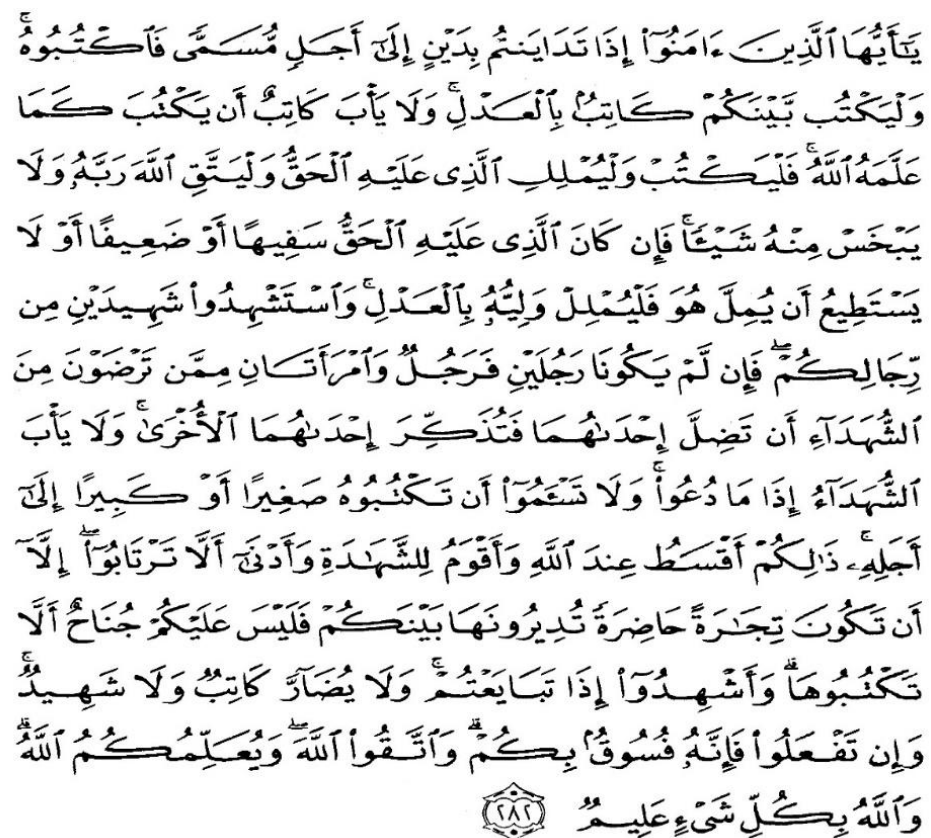 يَـٰٓأَيُّهَا ٱلَّذِينَ ءَامَنُوٓا۟ إِذَا تَدَايَنتُم بِدَيْنٍ إِلَىٰٓ أَجَلٍ مُّسَمًّى فَٱكْتُبُوهُ ۚ
وَلْيَكْتُب بَّيْنَكُمْ كَاتِبٌۢ بِٱلْعَدْلِ ۚ وَلَا يَأْبَ كَاتِبٌ أَن يَكْتُبَ كَمَا
عَلَّمَهُ ٱللَّهُ ۚ فَلْيَكْتُبْ وَلْيُمْلِلِ ٱلَّذِى عَلَيْهِ ٱلْحَقُّ وَلْيَتَّقِ ٱللَّهَ رَبَّهُۥ وَلَا
يَبْخَسْ مِنْهُ شَيْـًٔا ۚ فَإِن كَانَ ٱلَّذِى عَلَيْهِ ٱلْحَقُّ سَفِيهًا أَوْ ضَعِيفًا أَوْ لَا
يَسْتَطِيعُ أَن يُمِلَّ هُوَ فَلْيُمْلِلْ وَلِيُّهُۥ بِٱلْعَدْلِ ۚ وَٱسْتَشْهِدُوا۟ شَهِيدَيْنِ مِن
رِّجَالِكُمْ ۖ فَإِن لَّمْ يَكُونَا رَجُلَيْنِ فَرَجُلٌ وَٱمْرَأَتَانِ مِمَّن تَرْضَوْنَ مِنَ
ٱلشُّهَدَآءِ أَن تَضِلَّ إِحْدَىٰهُمَا فَتُذَكِّرَ إِحْدَىٰهُمَا ٱلْأُخْرَىٰ ۚ وَلَا يَأْبَ
ٱلشُّهَدَآءُ إِذَا مَا دُعُوا۟ ۚ وَلَا تَسْـَٔمُوٓا۟ أَن تَكْتُبُوهُ صَغِيرًا أَوْ كَبِيرًا إِلَىٰٓ
أَجَلِهِۦ ۚ ذَٰلِكُمْ أَقْسَطُ عِندَ ٱللَّهِ وَأَقْوَمُ لِلشَّهَـٰدَةِ وَأَدْنَىٰٓ أَلَّا تَرْتَابُوٓا۟ ۖ إِلَّآ
أَن تَكُونَ تِجَـٰرَةً حَاضِرَةً تُدِيرُونَهَا بَيْنَكُمْ فَلَيْسَ عَلَيْكُمْ جُنَاحٌ أَلَّا
تَكْتُبُوهَا ۗ وَأَشْهِدُوٓا۟ إِذَا تَبَايَعْتُمْ ۚ وَلَا يُضَآرَّ كَاتِبٌ وَلَا شَهِيدٌ ۚ
وَإِن تَفْعَلُوا۟ فَإِنَّهُۥ فُسُوقٌۢ بِكُمْ ۗ وَٱتَّقُوا۟ ٱللَّهَ ۖ وَيُعَلِّمُكُمُ ٱللَّهُ ۗ
وَٱللَّهُ بِكُلِّ شَىْءٍ عَلِيمٌ ﴿٢٨٢﴾